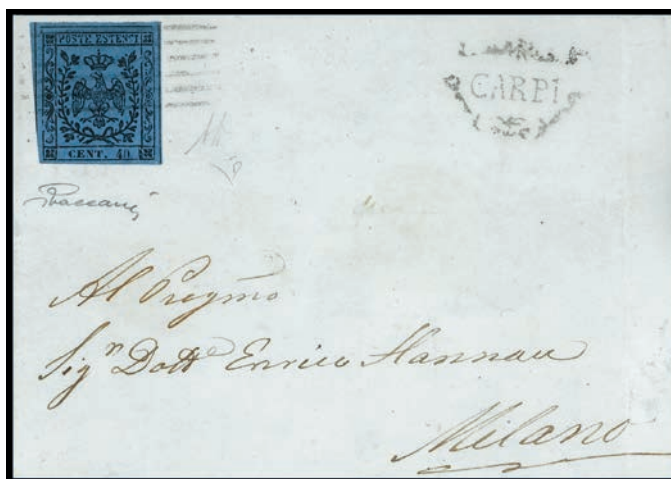 POSTE ESTENSI
CENT. 40
CARPI
Al Pregmo
Sign Dott Enrico Hannau
Milano